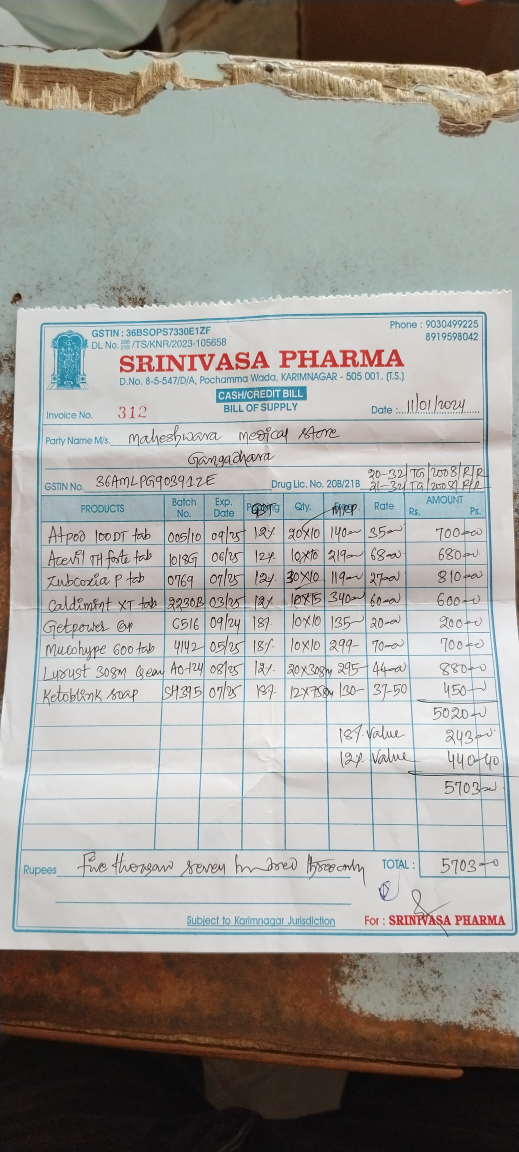 GSTIN : 36BSOPS7330E1ZF
Phone : 9030499225
DL No. /TS/KNR/2023-105658
8919598042
SRINIVASA PHARMA
D.No. 8-5-547/D/A, Pochamma Wada, KARIMNAGAR - 505 001. (T.S.)
CASH/CREDIT BILL
BILL OF SUPPLY
Invoice No. 312 Date : 11/01/2024
Party Name M/s. Maheshwara Medical Store
Gangadhara
20-32/TG/2008/R/R
GSTIN No. 36AMLPG9039J2E Drug Lic. No. 20B/21B 21-32/TG/2008/R/R
PRODUCTS Batch No. Exp. Date GST Qty. MRP Rate AMOUNT Rs. Ps.
Atpod 100 DT tab 005/10 09/25 12% 20X10 140 35 700-00
Acevil TH forte tab 1018G 06/25 12% 10X10 219 68-00 680-00
Zubcoxia P tab 0769 07/25 12% 30X10 119 27-00 810-00
Caldimint XT tab 2230B 03/25 12% 10X15 340 60-00 600-00
Getpower Cap C516 09/24 18% 10X10 135 20-00 200-00
Mucohype 600 tab 4142 05/25 18% 10X10 299 70-00 700-00
30gm AO-124 08/25 12% 20X30gm 295 44-00 880-00
Ketoblink soap SH395 07/25 18% 12X75gm 130 37-50 450
5020-00
18% Value 243-00
12% Value 440-40
5703-00
Rupees Five thousan seven hundred three only TOTAL : 5703-00
Subject to Karimnagar Jurisdiction For : SRINIVASA PHARMA